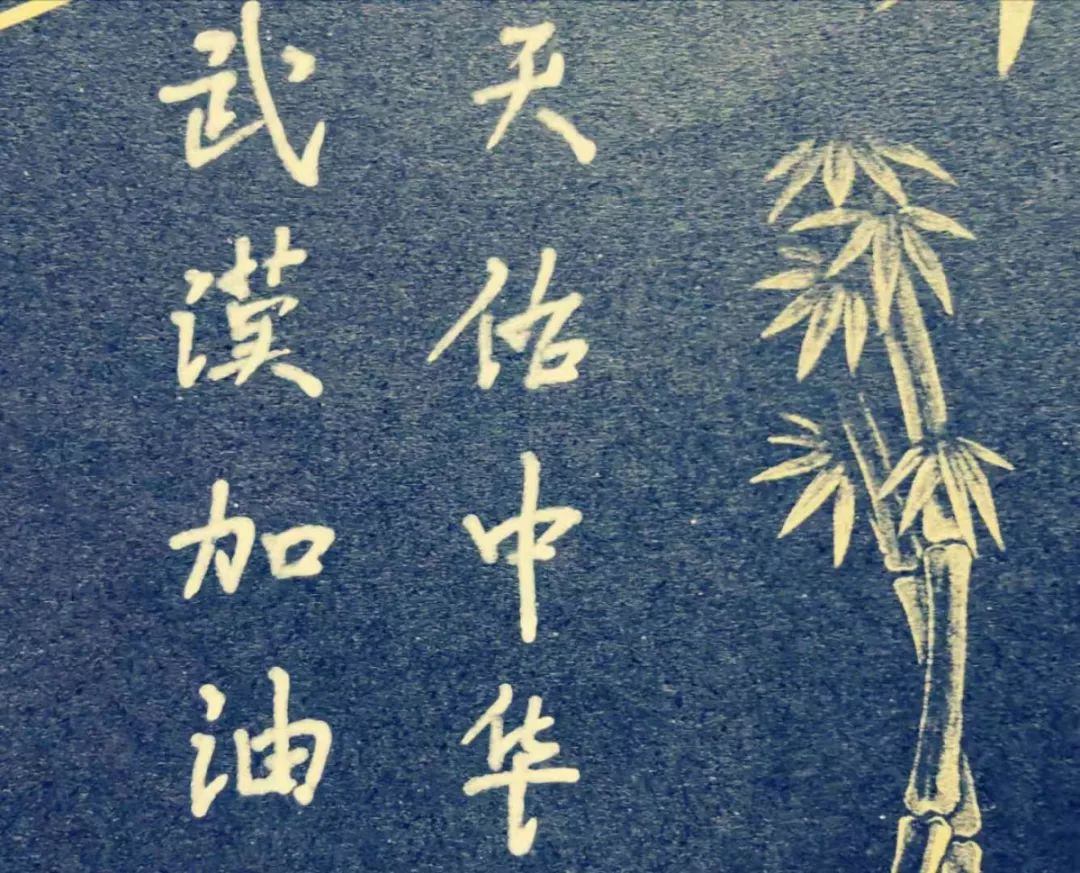 天佑中华
武漢加油